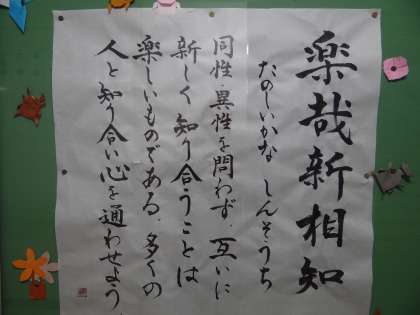 楽哉新相知
たのしいかな しんそうち
同性・異性を問わず、互いに
新しく知り合うことは
楽しいものである。多くの
人と知り合い心を通わせよう。